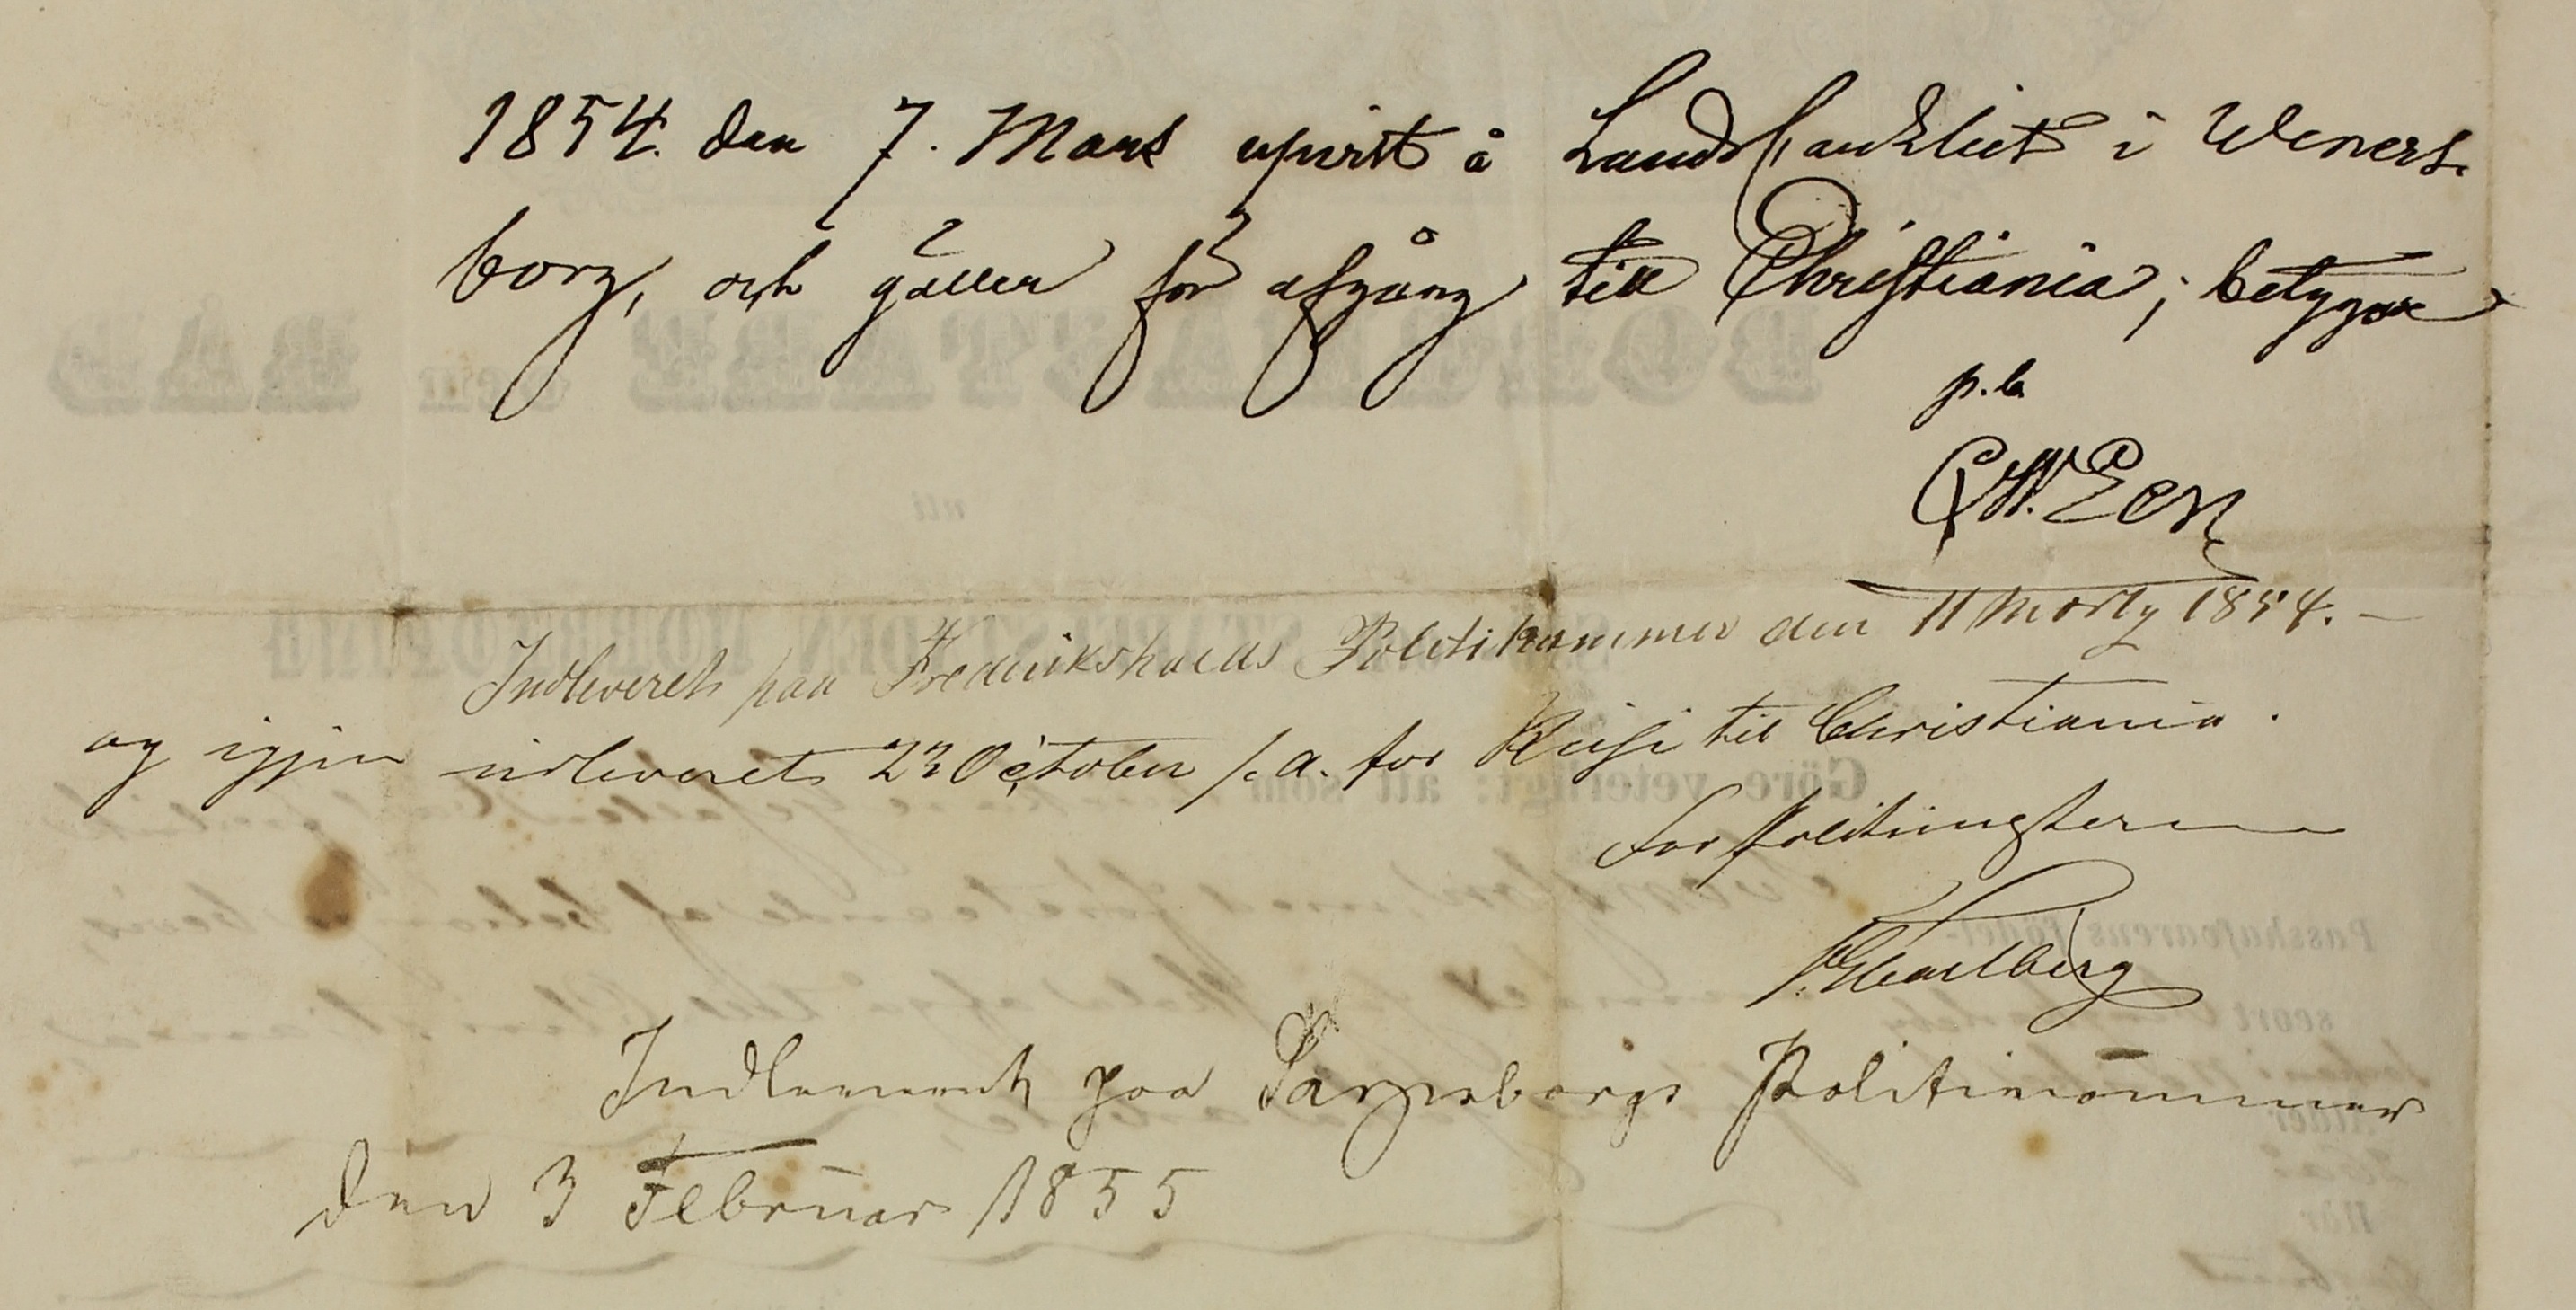 1854. den 7. Mars upvist å Landskansliet i Weners-
borg, och gäller för afgång till Christiania; betygar
p. la
Indleveret paa Frederikshalds Politikammer den 11 Marty 1854. -
og igjen indleveret 23 October s. a. for Reise til Christiania.
For Politimesteren
Indleveret paa Sarpsborgs Politikammer
den 3 Februar 1855